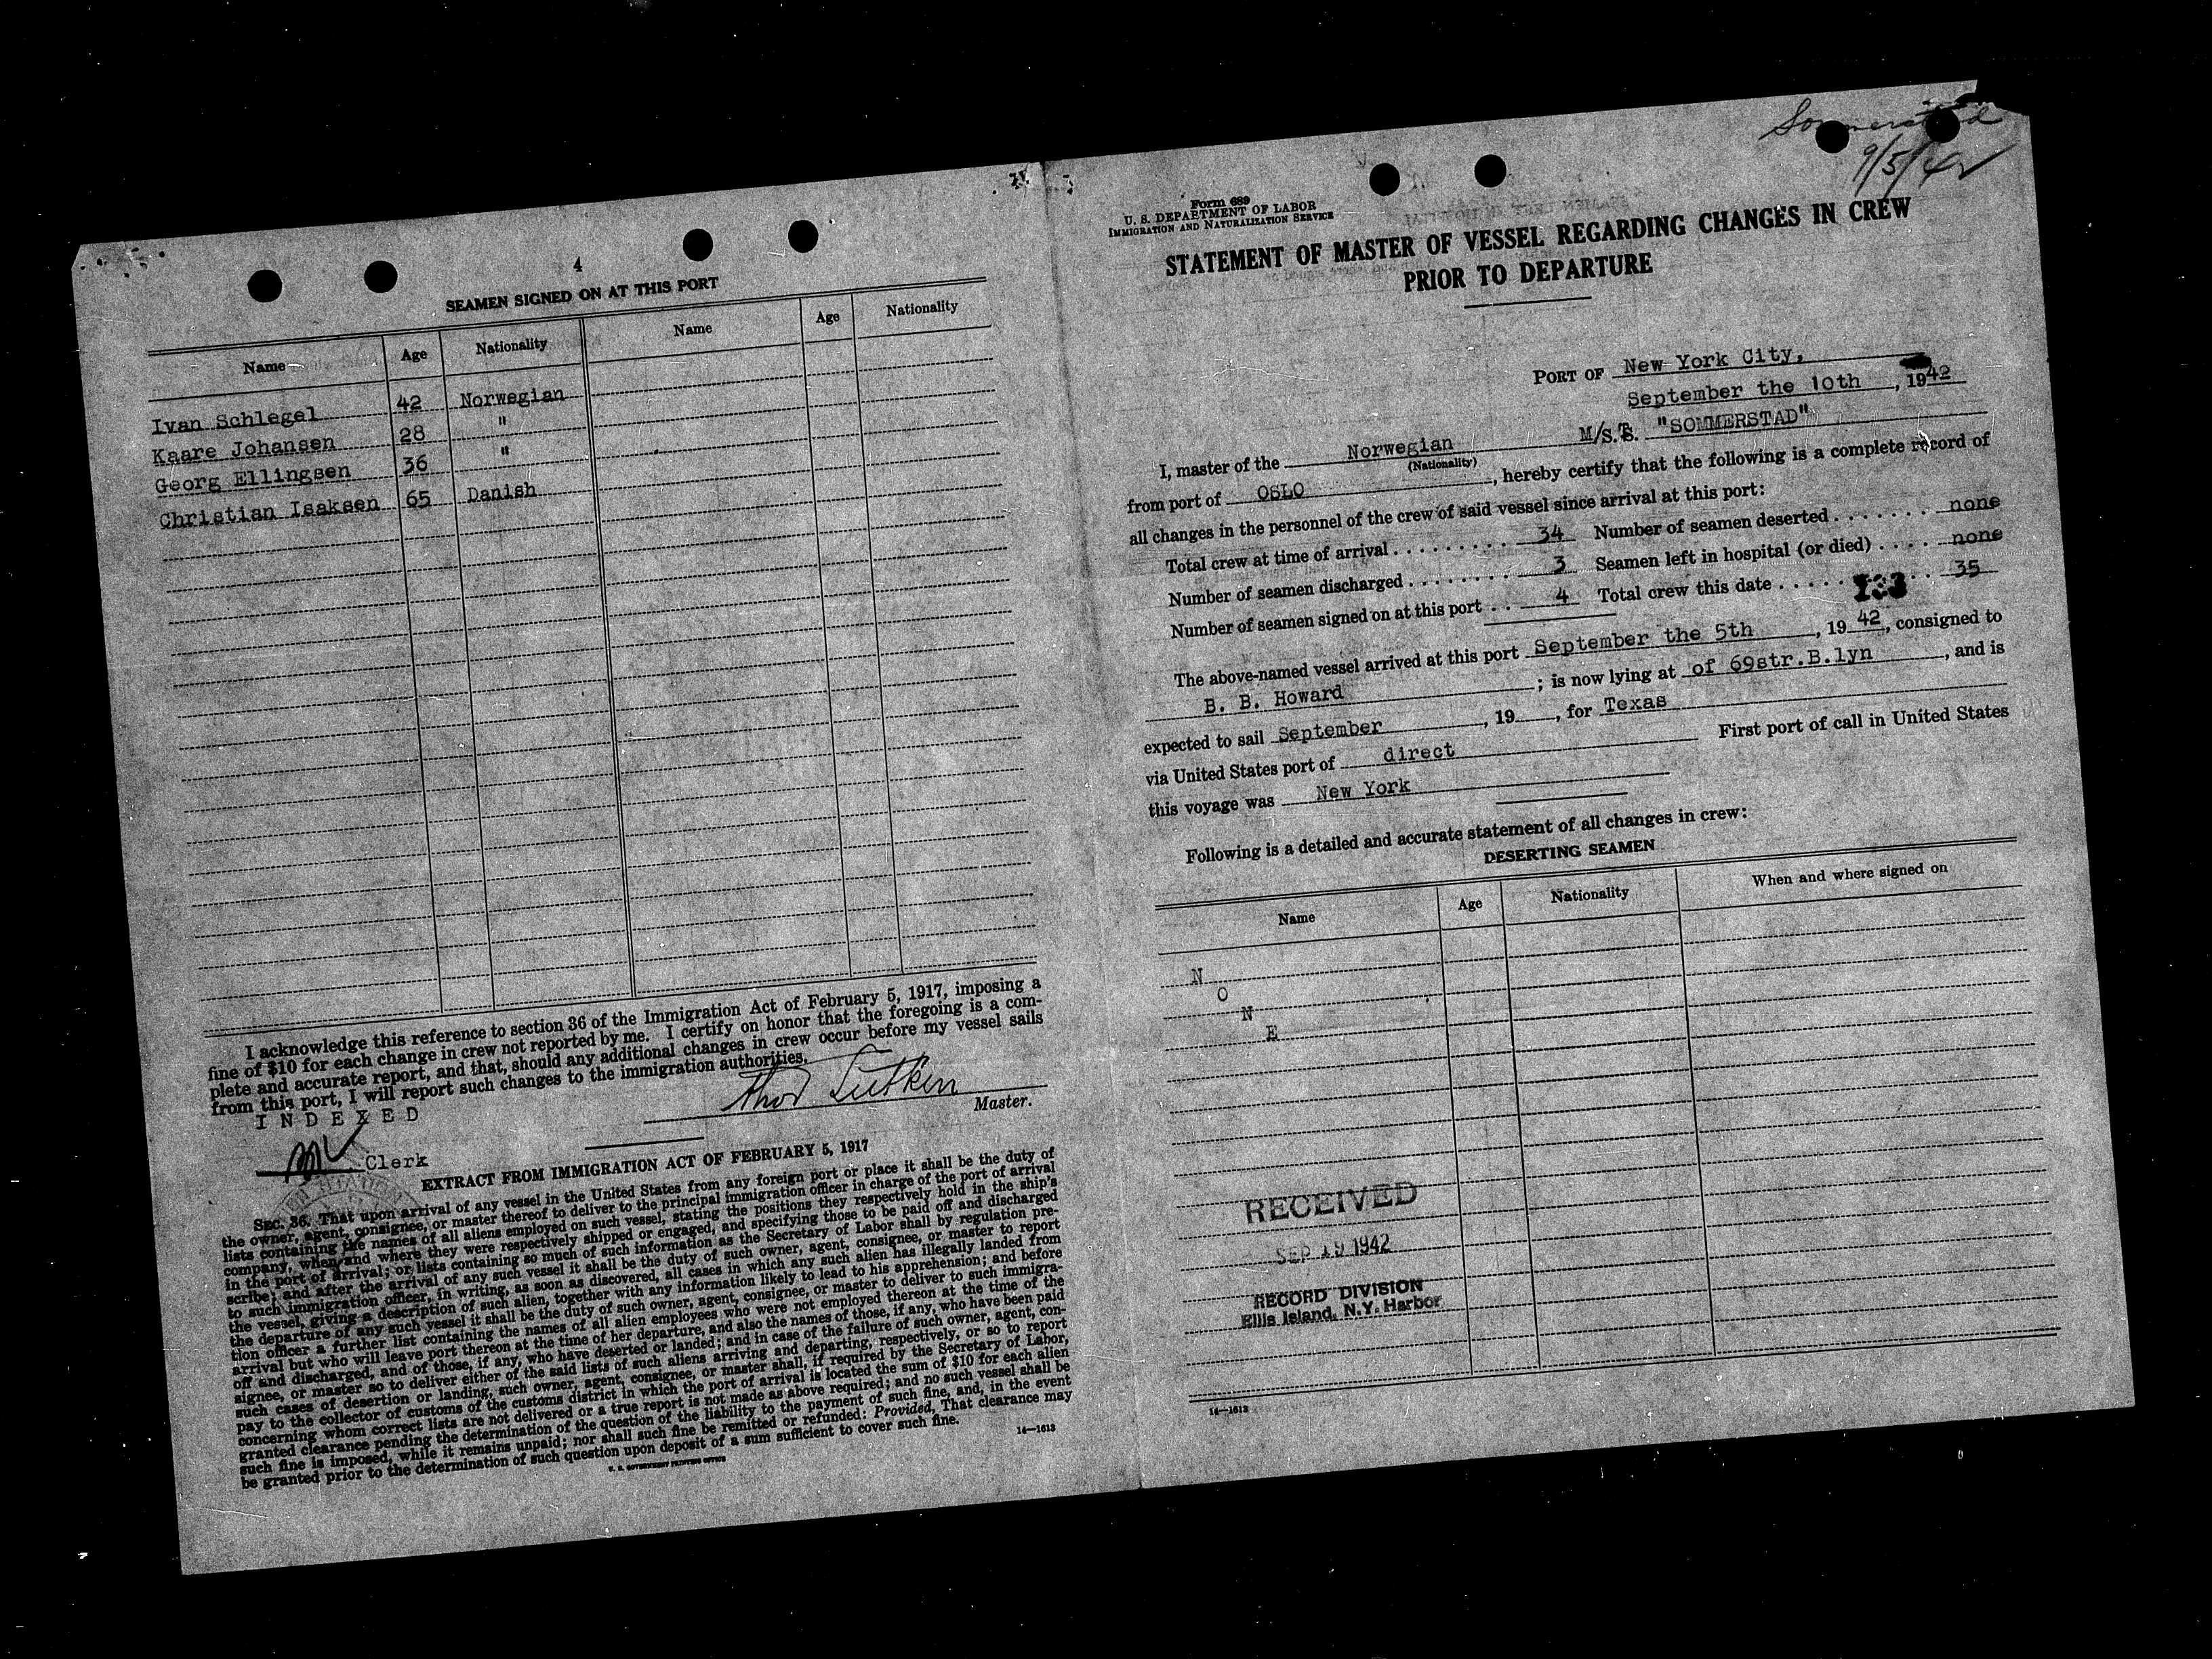 4
SEAMEN SIGNED ON AT THIS PORT
Name Age Nationality Name Age Nationality
Ivan Schlegel 42 Norwegian
Kaare Johansen 28 "
Georg Ellingsen 36 "
Christian Isaksen 65 Danish
I acknowledge this reference to section 36 of the Immigration Act of February 5, 1917, imposing a
fine of $10 for each change in crew not reported by me. I certify on honor that the foregoing is a com-
plete and accurate report, and that, should any additional changes in crew occur before my vessel sails
from this port, I will report such changes to the immigration authorities.
INDEXED
Thor Lutken
Master.
Clerk
EXTRACT FROM IMMIGRATION ACT OF FEBRUARY 5, 1917
SEC. 36. That upon arrival of any vessel in the United States from any foreign port or place it shall be the duty of
the owner, agent, consignee, or master thereof to deliver to the principal immigration officer in charge of the port of arrival
lists containing the names of all aliens employed on such vessel, stating the positions they respectively hold in the ship's
company, when and where they were respectively shipped or engaged, and specifying those to be paid off and discharged
in the port of arrival; or lists containing so much of such information as the Secretary of Labor shall by regulation pre-
scribe; and after the arrival of any such vessel it shall be the duty of such owner, agent, consignee, or master to report
to such immigration officer, in writing, as soon as discovered, all cases in which any such alien has illegally landed from
the vessel, giving a description of such alien, together with any information likely to lead to his apprehension; and before
the departure of any such vessel it shall be the duty of such owner, agent, consignee, or master to deliver to such immigra-
tion officer a further list containing the names of all alien employees who were not employed thereon at the time of the
arrival but who will leave port thereon at the time of her departure, and also the names of those, if any, who have been paid
off and discharged, and of those, if any, who have deserted or landed; and in case of the failure of such owner, agent, con-
signee, or master so to deliver either of the said lists of such aliens arriving and departing, respectively, or so to report
such cases of desertion or landing, such owner, agent, consignee, or master shall, if required by the Secretary of Labor,
pay to the collector of customs of the customs district in which the port of arrival is located the sum of $10 for each alien
concerning whom correct lists are not delivered or a true report is not made as above required; and no such vessel shall be
granted clearance pending the determination of the question of the liability to the payment of such fine, and, in the event
such fine is imposed, while it remains unpaid; nor shall such fine be remitted or refunded: Provided, That clearance may
be granted prior to the determination of such question upon deposit of a sum sufficient to cover such fine.
U. S. GOVERNMENT PRINTING OFFICE
14—1613
Sommerstad
9/5/42
Form 689
U. S. DEPARTMENT OF LABOR
IMMIGRATION AND NATURALIZATION SERVICE
STATEMENT OF MASTER OF VESSEL REGARDING CHANGES IN CREW
PRIOR TO DEPARTURE
PORT OF New York City,
September the 10th, 1942
I, master of the Norwegian M/S.T. "SOMMERSTAD"
(Nationality)
from port of OSLO, hereby certify that the following is a complete record of
all changes in the personnel of the crew of said vessel since arrival at this port:
Total crew at time of arrival . . . . . . . . . 34 Number of seamen deserted . . . . . . . none
Number of seamen discharged . . . . . . . . 3 Seamen left in hospital (or died) . . . . none
Number of seamen signed on at this port . . 4 Total crew this date . . . . . . . . . 35
133
The above-named vessel arrived at this port September the 5th, 19 42, consigned to
B. B. Howard; is now lying at of 69str.B.lyn, and is
expected to sail September, 19, for Texas
via United States port of direct First port of call in United States
this voyage was New York
Following is a detailed and accurate statement of all changes in crew:
DESERTING SEAMEN
Name Age Nationality When and where signed on
N
O
N
E
RECEIVED
SEP 19 1942
RECORD DIVISION
Ellis Island, N.Y. Harbor
14—1613